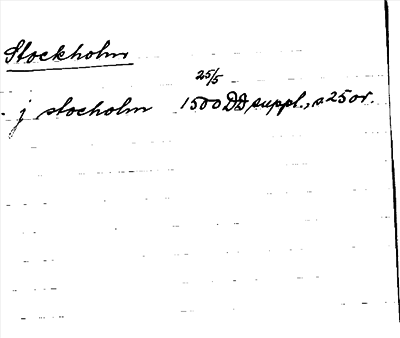 Stockholm
25/5
j stocholm 1500 DD suppl., s 25 or.